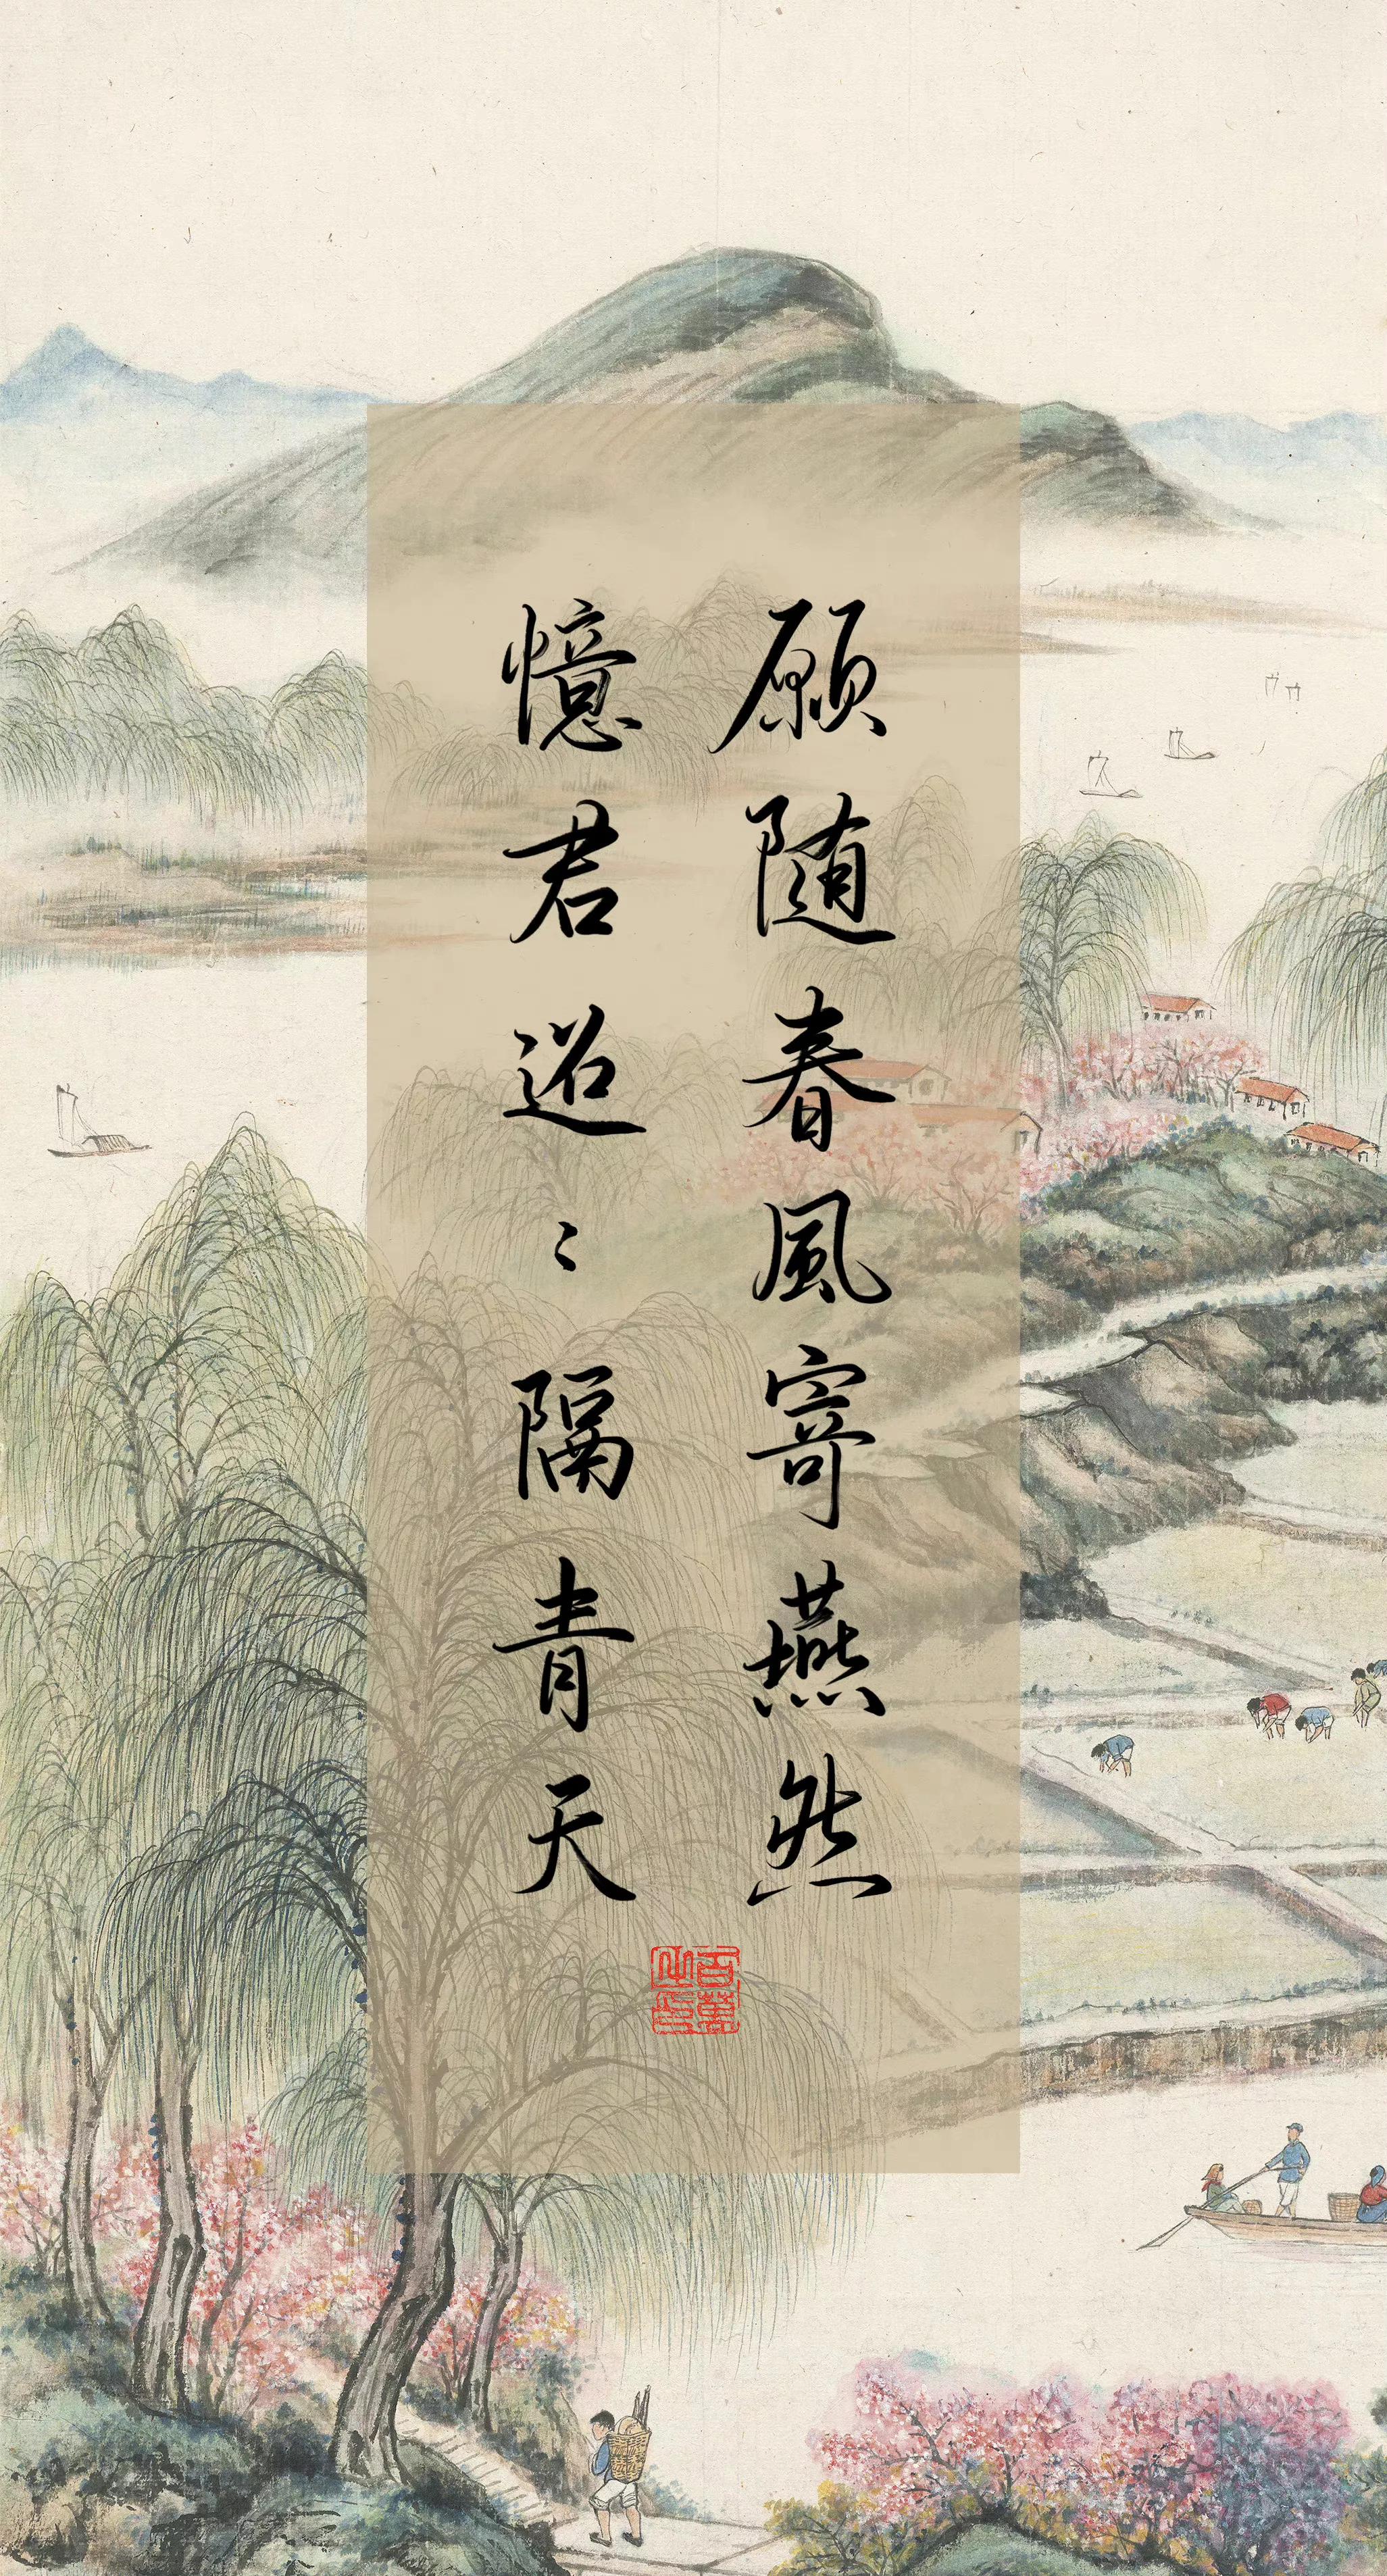 願随春風寄燕然
憶君迢〻隔青天